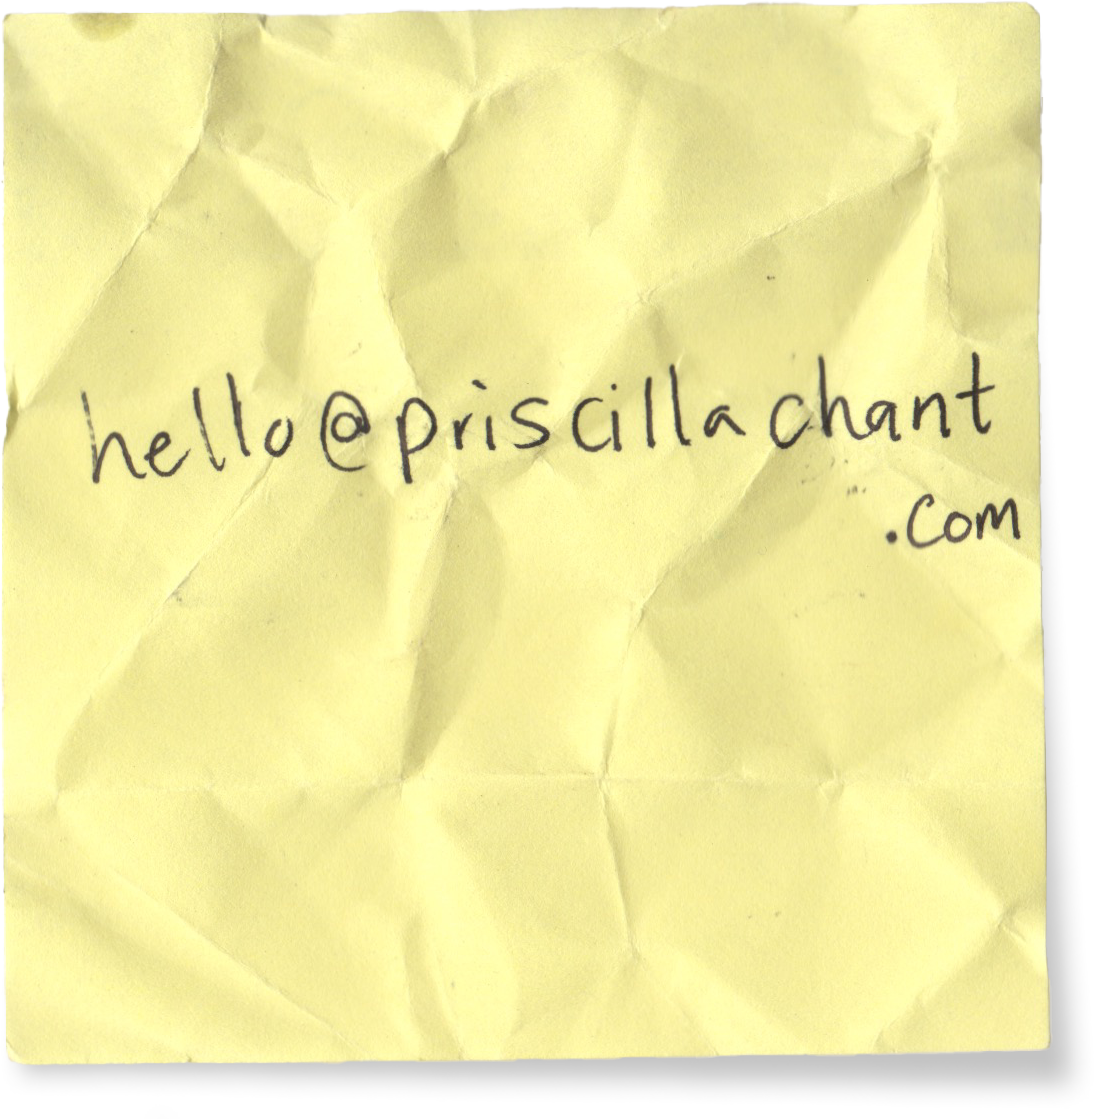 hello@priscillachant
.com